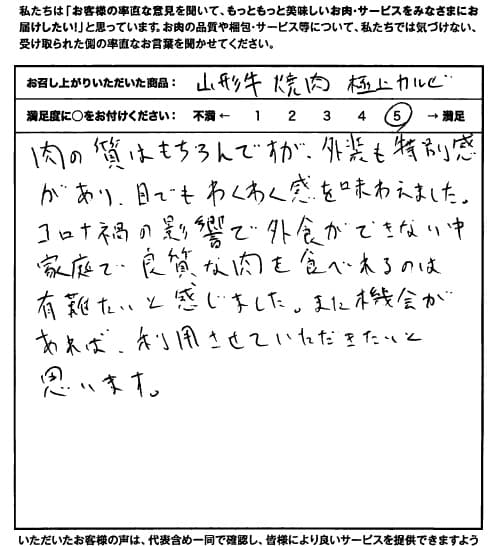 私たちは「お客様の率直な意見を聞いて、もっともっと美味しいお肉・サービスをみなさまにお
届けしたい！」と思っています。お肉の品質や梱包・サービス等について、私たちでは気づけない、
受け取られた側の率直なお言葉を聞かせてください。
お召し上がりいただいた商品： 山形牛 焼肉 極上カルビ
満足度に○をお付けください： 不満 ← 1 2 3 4 5 → 満足
肉の質はもちろんですが、外装も特別感
があり、目でもわくわく感を味わえました。
コロナ禍の影響で外食ができない中
家庭で良質な肉を食べれるのは
有難たいと感じました。また機会が
あれば、利用させていただきたいと
思います。
いただいたお客様の声は、代表含め一同で確認し、皆様により良いサービスを提供できますよう